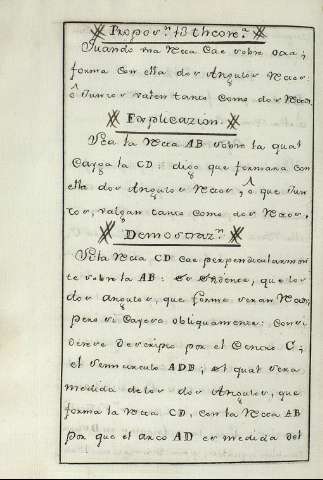 Propos.ⁿ 13 theore.ᵃ
Quando una Recta Cae sobre otra;
forma Con ella dos Angulos Rectos:
ô Juntos valen tanto Como dos Rectos.
Explicazion.
Sea la Recta AB sobre la qual
Cayga la CD: digo que formara Con
ella dos Angulos Rectos, ô que Jun-
tos, valgan tanto Como dos Rectos.
Demostraz.ⁿ
Si la Recta CD Cae perpendicularmen-
te sobre la AB: es evidente, que los
dos angulos, que forma seran Rectos;
pero si Cayere obliquamente: Consi-
derese descripto por el Centro C;
el semicirculo ADB; el qual sera
medida de los dos Angulos, que
forma la Recta CD, Con la Recta AB
por que el arco AD es medida del